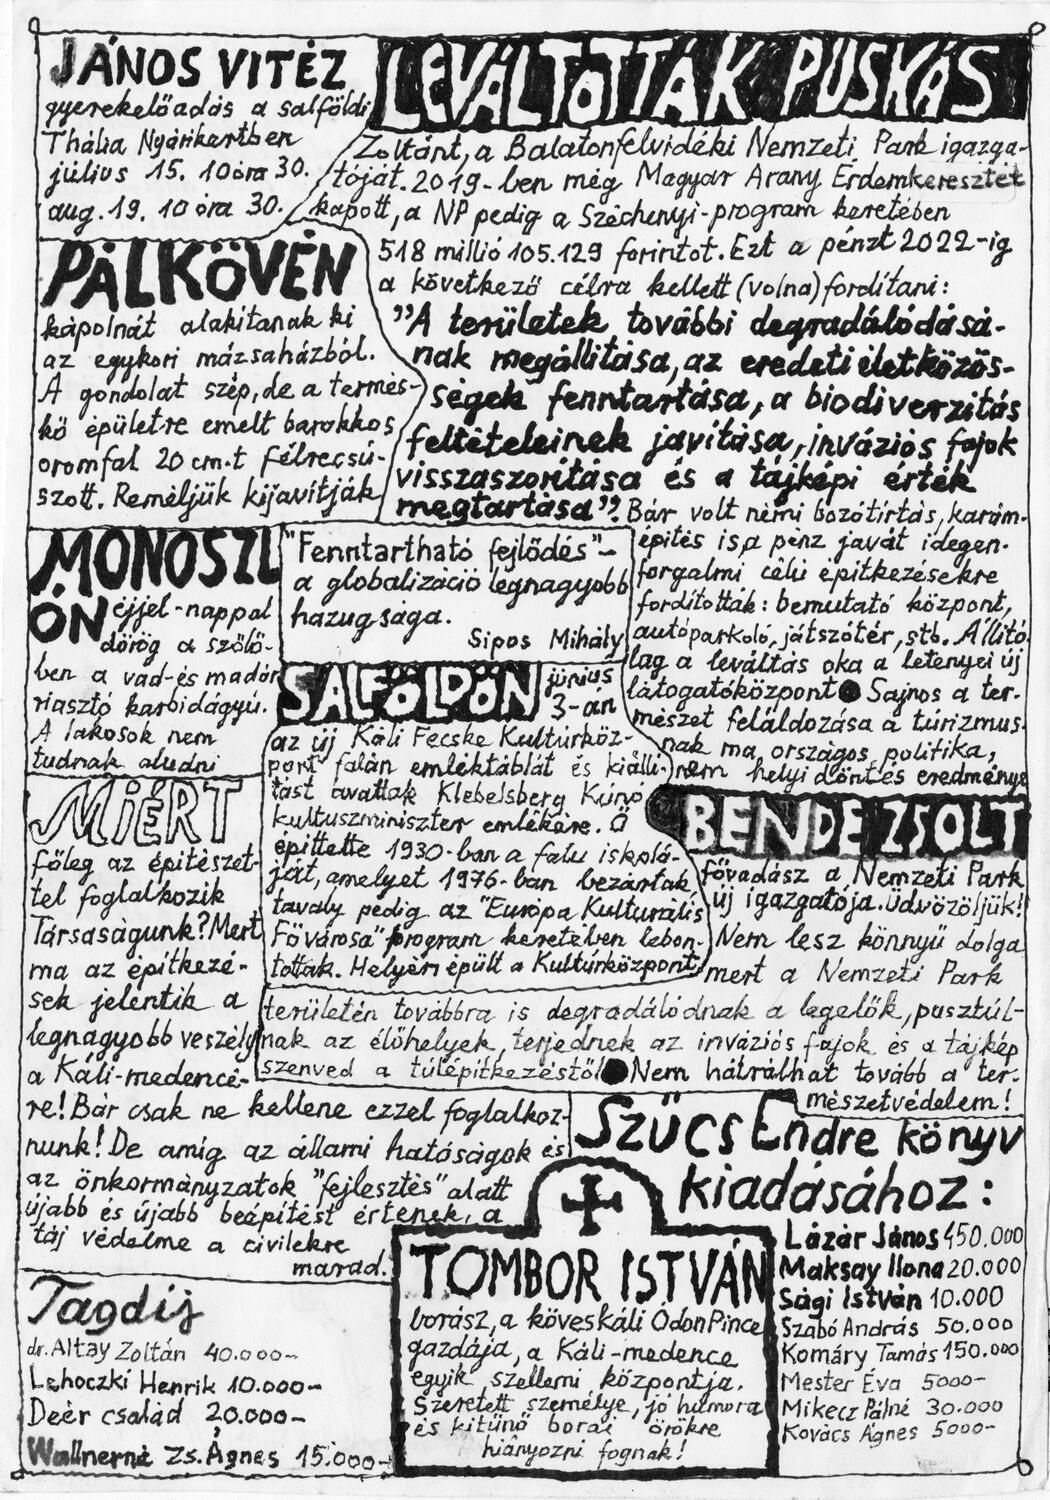 JÁNOS VITÉZ
gyerekelőadás a salföldi
Thália Nyárikertben
július 15. 10 óra 30.
aug. 19. 10 óra 30.
LEVÁLTOTTÁK PUSKÁS
Zoltánt, a Balatonfelvidéki Nemzeti Park igazga-
tóját. 2019-ben még Magyar Arany Érdemkeresztet
kapott, a NP pedig a Széchenyi-program keretében
518 millió 105.129 forintot. Ezt a pénzt 2022-ig
a következő célra kellett (volna) fordítani:
"A területek további degradálódásá-
nak megállítása, az eredeti életközös-
ségek fenntartása, a biodiverzitás
feltételeinek javítása, inváziós fajok
visszaszorítása és a tájképi érték
megtartása". Bár volt némi bozótirtás, karám-
építés is, a pénz javát idegen-
forgalmi célú építkezésekre
fordították: bemutató központ,
autóparkoló, játszótér, stb. Állító-
lag a leváltás oka a letenyei új
látogatóközpont ● Sajnos a ter-
mészet feláldozása a túrizmus-
nak ma, országos politika,
nem helyi döntés eredménye
PÁLKÖVÉN
kápolnát alakítanak ki
az egykori mázsaházból.
A gondolat szép, de a termés-
kő épületre emelt barokkos
oromfal 20 cm-t félrecsú-
szott. Reméljük kijavítják
MONOSZL
ÓN éjjel-nappal
dörög a szőlő-
ben a vad-és madár
riasztó karbidágyú.
A lakosok nem
tudnak aludni
"Fenntartható fejlődés"-
a globalizáció legnagyobb
hazugsága.
Sipos Mihály
SALFÖLDÖN június
3-án
az új Káli Fecske Kultúrköz-
pont falán emléktáblát és kiállí-
tást avattak Klebelsberg Kunó
kultuszminiszter emlékére. Ő
építtette 1930-ban a falu iskolá-
ját, amelyet 1976-ban bezártak,
tavaly pedig az "Európa Kulturális
Fővárosa" program keretében lebon-
tottak. Helyén épült a Kultúrközpont
MIÉRT
főleg az építészet-
tel foglalkozik
Társaságunk? Mert
ma az építkezé-
sek jelentik a
legnagyobb veszélyt
a Káli-medencé-
re! Bár csak ne kellene ezzel foglalkoz-
nunk! De amíg az állami hatóságok és
az önkormányzatok "fejlesztés" alatt
újabb és újabb beépítést értenek, a
táj védelme a civilekre
marad.
BENDE ZSOLT
fővadász a Nemzeti Park
új igazgatója. Üdvözöljük!
Nem lesz könnyű dolga
mert a Nemzeti Park
területén továbbra is degradálódnak a legelők, pusztúl-
nak az élőhelyek, terjednek az inváziós fajok és a tájkép
szenved a túlépítkezéstől ● Nem hátrálhat tovább a ter-
mészetvédelem!
Tagdíj
dr. Altay Zoltán 40.000-
Lehoczki Henrik 10.000-
Deér család 20.000-
Wallnerné Zs. Ágnes 15.000-
TOMBOR ISTVÁN
borász, a köveskáli Ódon Pince
gazdája, a Káli-medence
egyik szellemi központja.
Szeretett személye, jó humora
és kitűnő borai örökre
hiányozni fognak!
Szűcs Endre könyv
kiadásához:
Lázár János 450.000
Maksay Ilona 20.000
Sági István 10.000
Szabó András 50.000
Komáry Tamás 150.000
Mester Éva 5000-
Mikecz Pálné 30.000
Kovács Ágnes 5000-